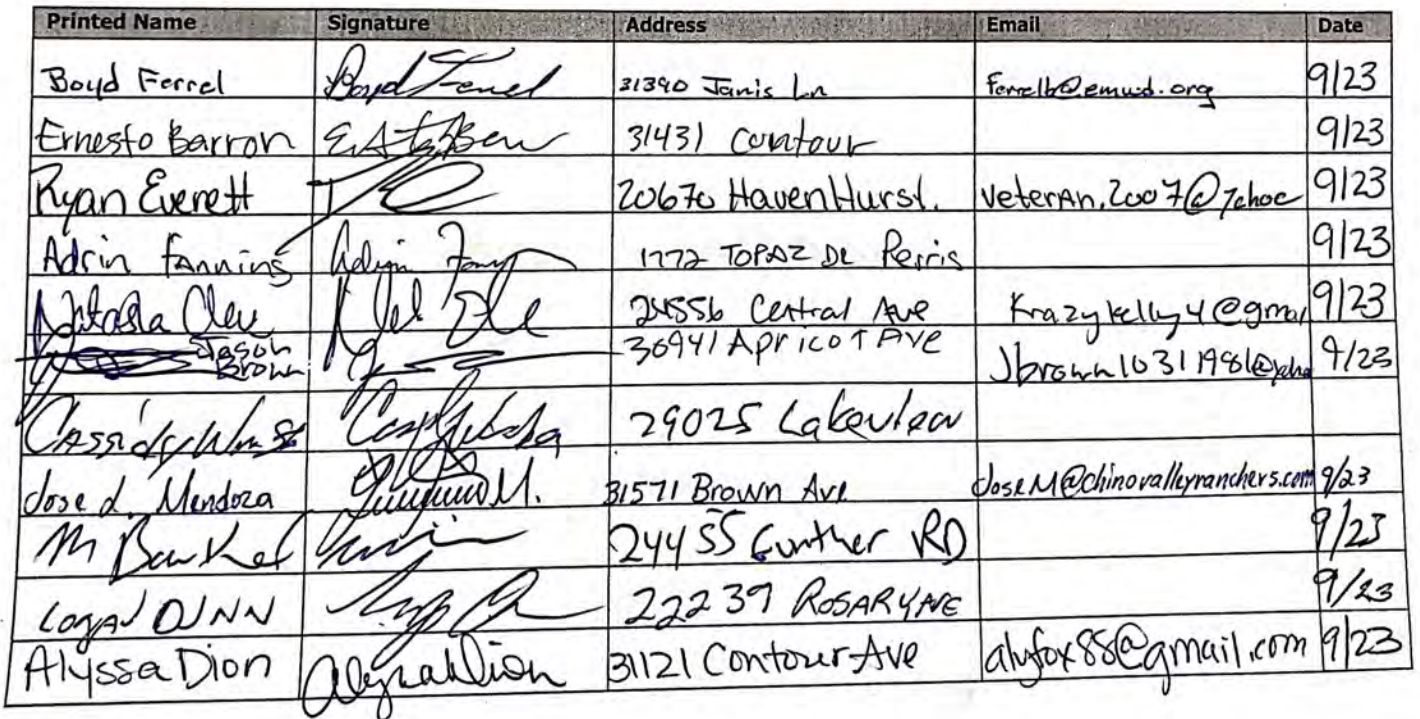 Printed Name Signature Address Email Date
Boyd Ferrel Boyd Ferrel 31390 Janis Ln ferrelb@emwd.org 9/23
Ernesto Barron 31431 Contour 9/23
Ryan Everett 20670 HavenHurst. veterAn.2007@yahoo 9/23
Adrin Fannins 1772 TOPAZ DR Perris 9/23
Natasha 24556 Central Ave Krazykelly4@gmai 9/23
Jason Brown 30941 Apricot Ave Jbrown10311981@yaho 9/23
CASSidy 29025 Lakeview
Jose L. Mendoza 31571 Brown Ave JoseM@chinovalleyranchers.com 9/23
M 24455 Gunther RD 9/23
LOGAN DUNN 22239 ROSARY AVE 9/23
Alyssa Dion Alyssa Dion 31121 Contour Ave alyfox85@gmail.com 9/23